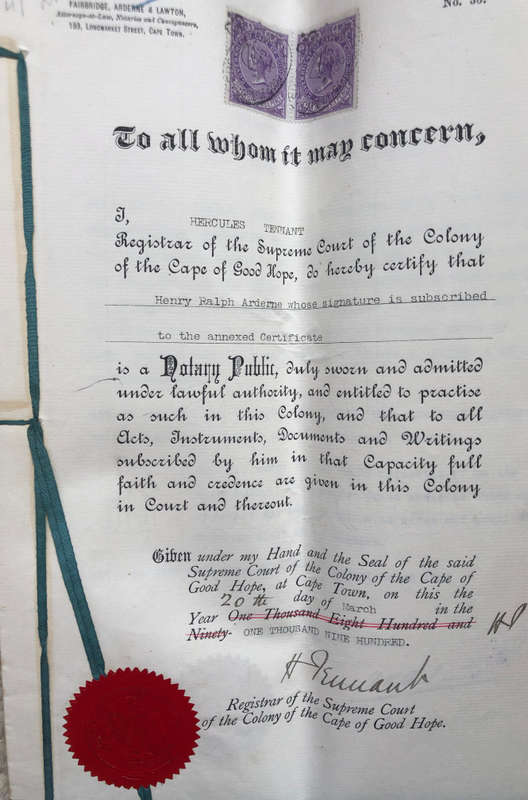 FAIRBRIDGE, ARDERNE & LAWTON,
Attorneys-at-Law, Notaries and Conveyancers,
199, LONGMARKET STREET, CAPE TOWN.
No.
To all whom it may concern,
I, HERCULES TENNANT
Registrar of the Supreme Court of the Colony
of the Cape of Good Hope, do hereby certify that
Henry Ralph Arderne whose signature is subscribed
to the annexed Certificate
is a Notary Public, duly sworn and admitted
under lawful authority, and entitled to practise
as such in this Colony, and that to all
Acts, Instruments, Documents and Writings
subscribed by him in that Capacity full
faith and credence are given in this Colony
in Court and thereout.
Given under my Hand and the Seal of the said
Supreme Court of the Colony of the Cape of
Good Hope, at Cape Town, on this the
20th day of March in the
Year One Thousand Eight Hundred and
Ninety- ONE THOUSAND NINE HUNDRED.
H Tennant
Registrar of the Supreme Court
of the Colony of the Cape of Good Hope.